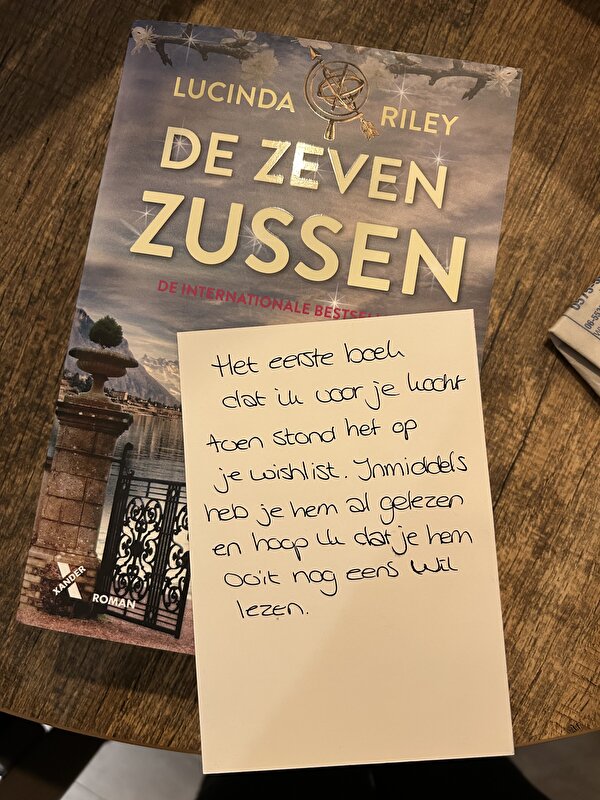 LUCINDA RILEY
DE ZEVEN
ZUSSEN
DE INTERNATIONALE
Het eerste boek
dat ik voor je kocht
toen stond het op
je wishlist. Inmiddels
heb je hem al gelezen
en hoop ik dat je hem
ooit nog eens wil
lezen.
XANDER
ROMAN